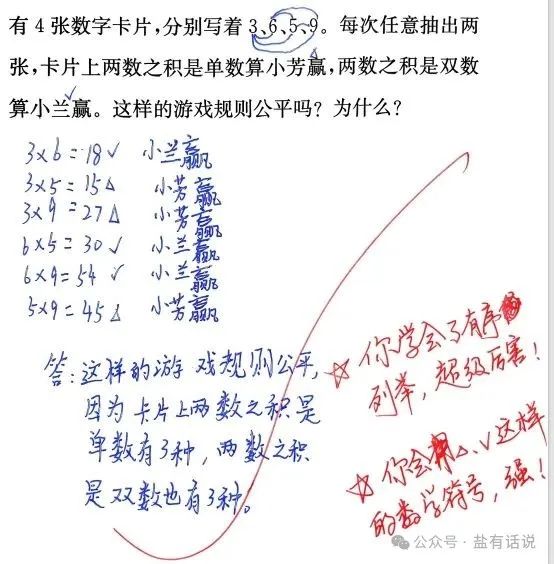 有 4 张数字卡片,分别写着 3、6、5、9。每次任意抽出两
张,卡片上两数之积是单数算小芳赢,两数之积是双数
算小兰赢。这样的游戏规则公平吗?为什么?
3×6=18✓ 小兰赢
3×5=15△ 小芳赢
3×9=27△ 小芳赢
6×5=30✓ 小兰赢
6×9=54✓ 小兰赢
5×9=45△ 小芳赢
答:这样的游戏规则公平,
因为卡片上两数之积是
单数有3种,两数之积
是双数也有3种。
☆你学会了有序
列举,超级厉害!
☆你会用△、✓这样
的数学符号,强!
公众号·盐有话说